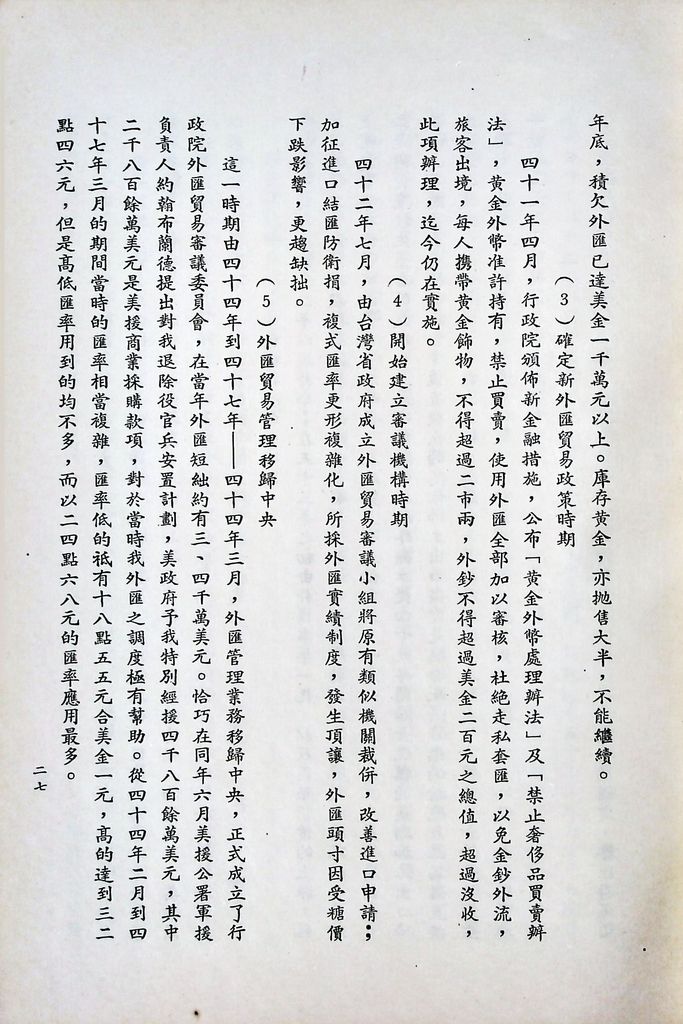 年底，積欠外匯已達美金一千萬元以上。庫存黃金，亦拋售大半，不能繼續。
（3）確定新外匯貿易政策時期
四十一年四月，行政院頒佈新金融措施，公布「黃金外幣處理辦法」及「禁止奢侈品買賣辦
法」，黃金外幣准許持有，禁止買賣，使用外匯全部加以審核，杜絕走私套匯，以免金鈔外流，
旅客出境，每人攜帶黃金飾物，不得超過二市兩，外鈔不得超過美金二百元之總值，超過沒收，
此項辦理，迄今仍在實施。
（4）開始建立審議機構時期
四十二年七月，由台灣省政府成立外匯貿易審議小組將原有類似機關裁併，改善進口申請；
加征進口結匯防衛捐，複式匯率更形複雜化，所採外匯實績制度，發生頂讓，外匯頭寸因受糖價
下跌影響，更趨缺拙。
（5）外匯貿易管理移歸中央
這一時期由四十四年到四十七年——四十四年三月，外匯管理業務移歸中央，正式成立了行
政院外匯貿易審議委員會，在當年外匯短絀約有三、四千萬美元。恰巧在同年六月美援公署軍援
負責人約翰布蘭德提出對我退除役官兵安置計劃，美政府予我特別經援四千八百餘萬美元，其中
二千八百餘萬美元是美援商業採購款項，對於當時我外匯之調度極有幫助。從四十四年二月到四
十七年三月的期間當時的匯率相當複雜，匯率低的祗有十八點五五元合美金一元，高的達到三二
點四六元，但是高低匯率用到的均不多，而以二四點六八元的匯率應用最多。
二七